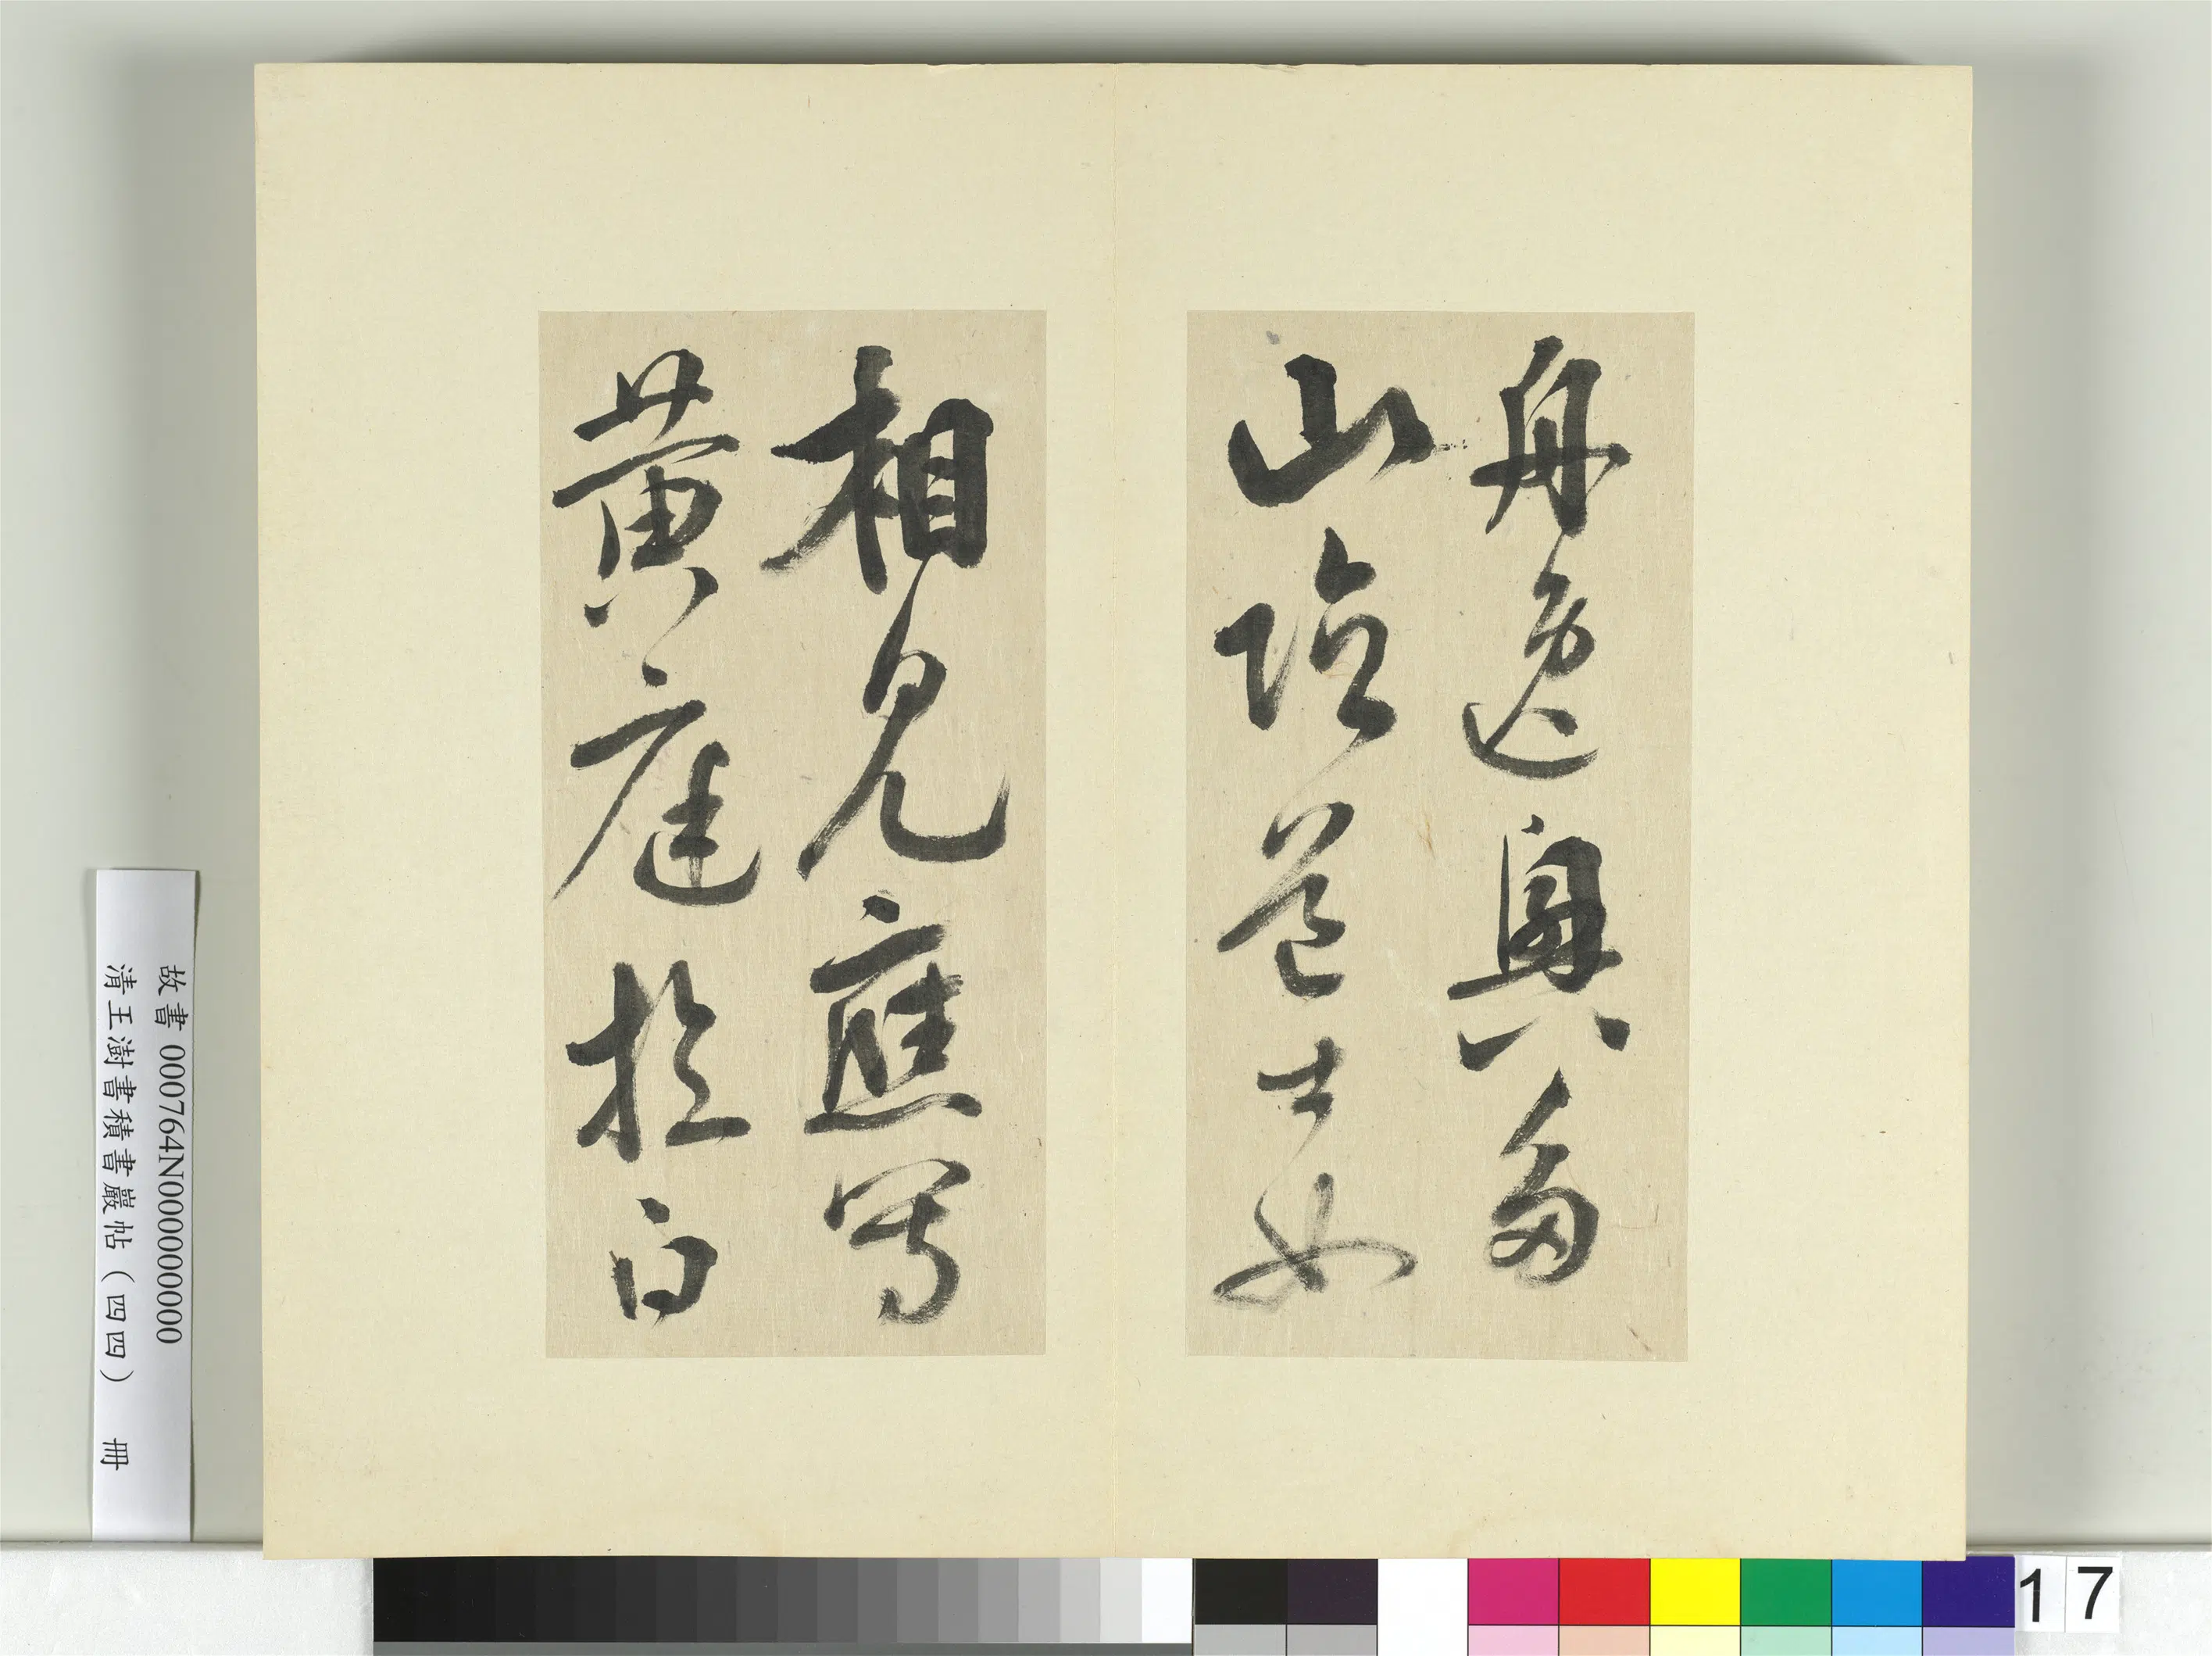 舟逸興多
山陰道士如
相見應寫
黃庭換白
故書 000764N000000000
清王澍書積書巖帖(四四) 冊
17